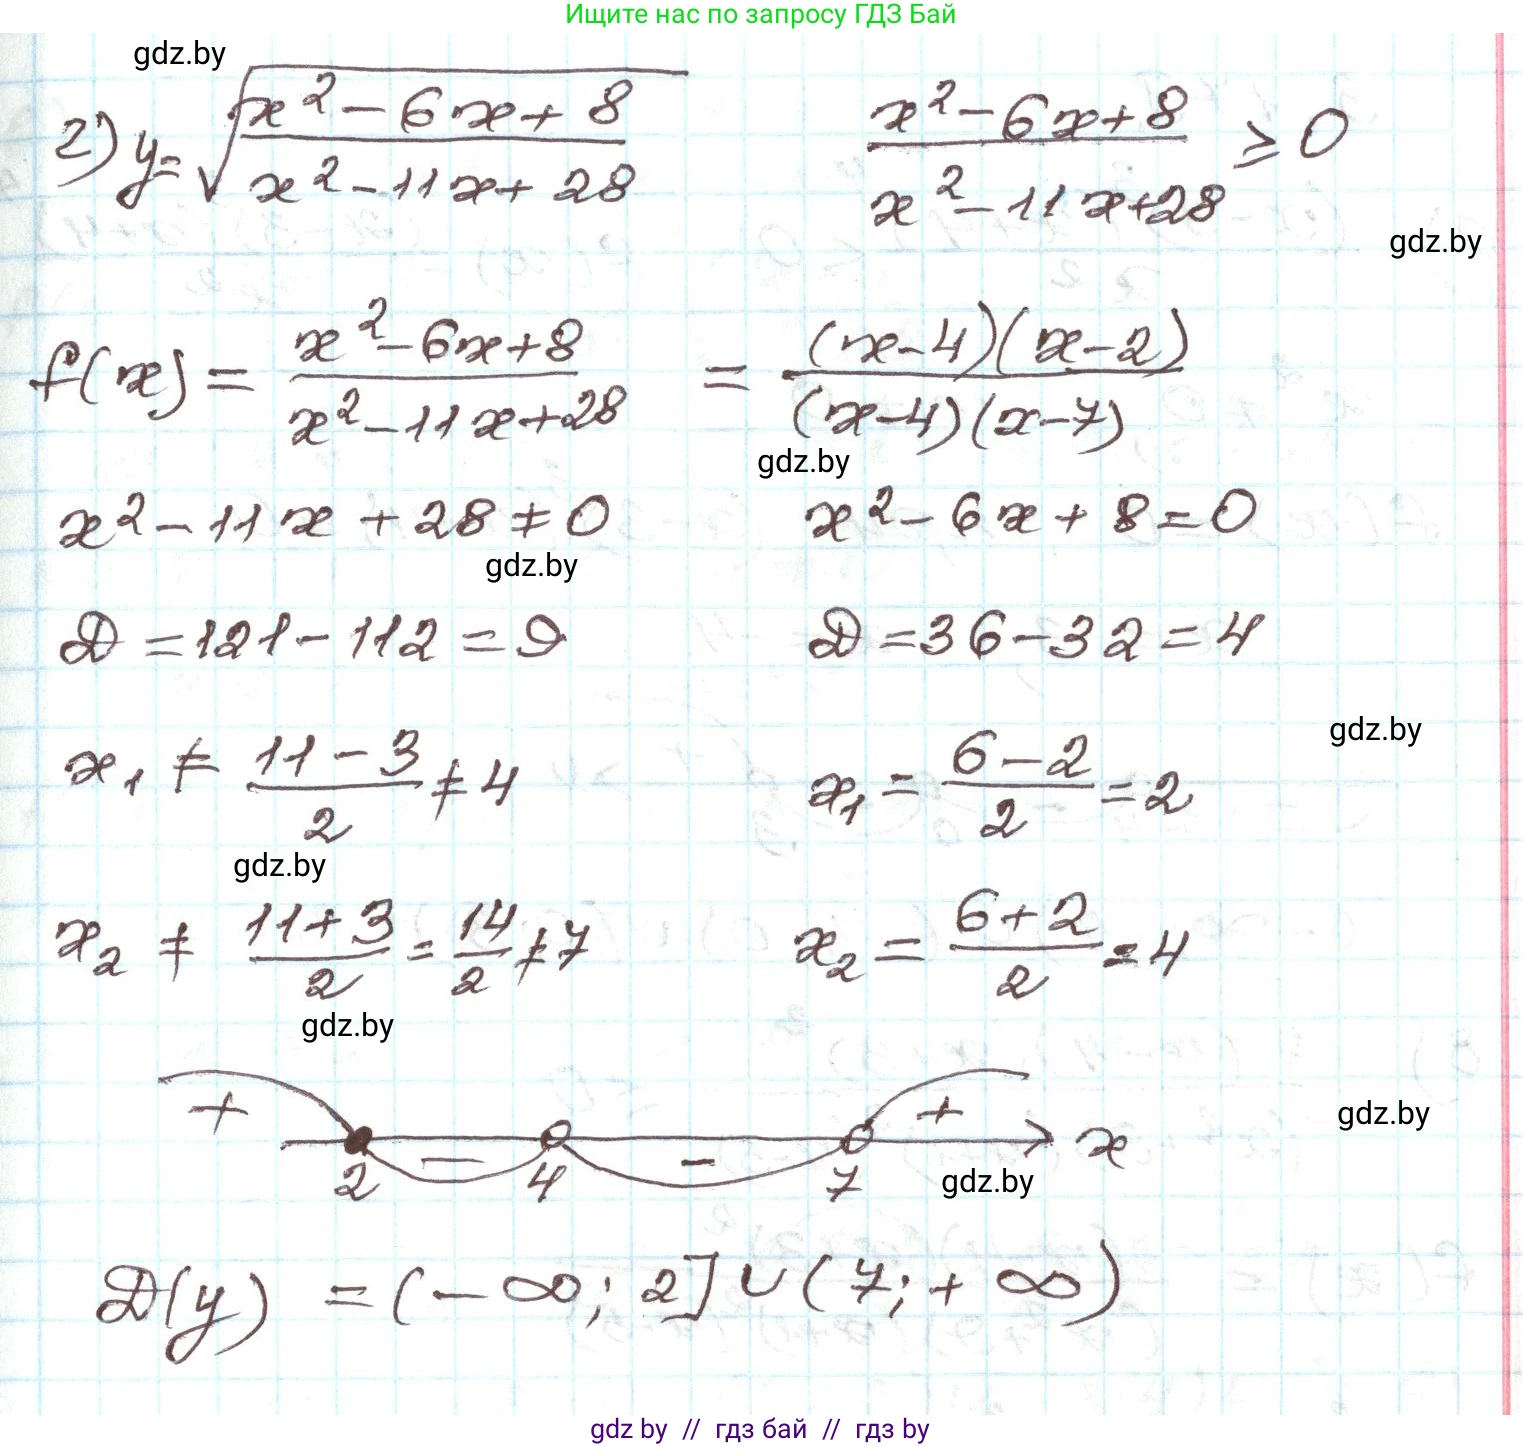 Ищите нас по запросу ГДЗ Бай
gdz.by
2) y = √((x² - 6x + 8)/(x² - 11x + 28))   (x² - 6x + 8)/(x² - 11x + 28) ≥ 0
gdz.by
f(x) = (x² - 6x + 8)/(x² - 11x + 28) = ((x-4)(x-2))/((x-4)(x-7))
gdz.by
x² - 11x + 28 ≠ 0   x² - 6x + 8 = 0
gdz.by
D = 121 - 112 = 9   D = 36 - 32 = 4
gdz.by
x₁ ≠ (11 - 3)/2 ≠ 4   x₁ = (6 - 2)/2 = 2
gdz.by
x₂ ≠ (11 + 3)/2 = 14/2 ≠ 7   x₂ = (6 + 2)/2 = 4
gdz.by
+ − − + x
gdz.by
2 4 7
gdz.by
D(y) = (-∞; 2] ∪ (7; +∞)
gdz by // гдз бай // гдз by